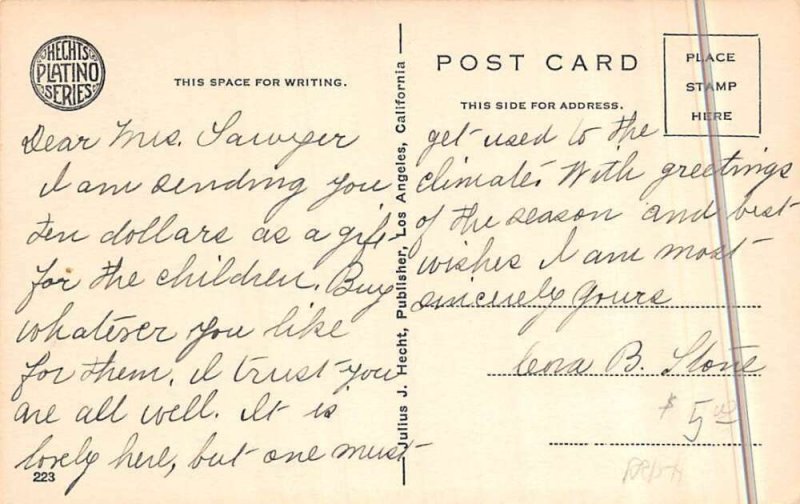 HECHTS
PLATINO
SERIES
THIS SPACE FOR WRITING.
Dear Mrs. Sawyer
I am sending you
ten dollars as a gift
for the children. Buy
whatever you like
for them. I trust you
are all well. It is
lovely here, but one must
223
Julius J. Hecht, Publisher, Los Angeles, California
POST CARD
THIS SIDE FOR ADDRESS.
PLACE
STAMP
HERE
get used to the
climate. With greetings
of the season and best
wishes I am most
sincerely yours
Cora B. Stone
$5.00